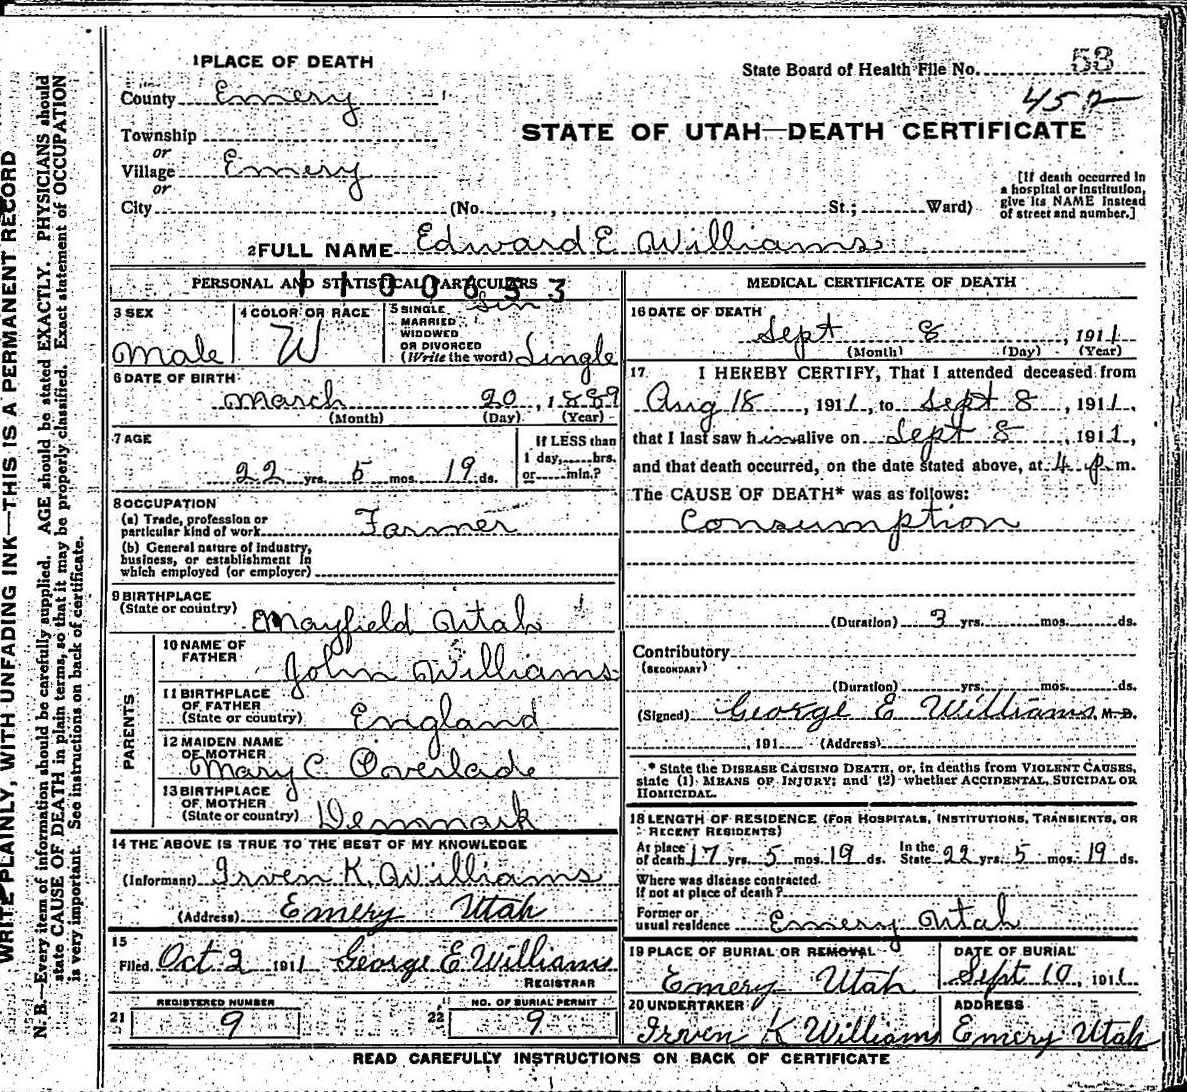 WRITE PLAINLY, WITH UNFADING INK—THIS IS A PERMANENT RECORD
N. B.—Every item of information should be carefully supplied. AGE should be stated EXACTLY. PHYSICIANS should
state CAUSE OF DEATH in plain terms, so that it may be properly classified. Exact statement of OCCUPATION
is very important. See instructions on back of certificate.
1 PLACE OF DEATH
State Board of Health File No. 53
452
County Emery
STATE OF UTAH—DEATH CERTIFICATE
Township
or
Village Emery
or
City (No. , St.; Ward)
[If death occurred in
a hospital or institution,
give its NAME instead
of street and number.]
2 FULL NAME Edward E. Williams
PERSONAL AND STATISTICAL PARTICULARS
1100653
3 SEX
Male
4 COLOR OR RACE
W
5 SINGLE Sin
MARRIED
WIDOWED
OR DIVORCED
(Write the word) Single
6 DATE OF BIRTH
March 20, 1889
(Month) (Day) (Year)
7 AGE
22 yrs. 5 mos. 19 ds.
If LESS than
1 day, hrs.
or min.?
8 OCCUPATION
(a) Trade, profession or
particular kind of work Farmer
(b) General nature of Industry,
business, or establishment in
which employed (or employer)
9 BIRTHPLACE
(State or country) Mayfield Utah
PARENTS
10 NAME OF
FATHER John Williams
11 BIRTHPLACE
OF FATHER
(State or country) England
12 MAIDEN NAME
OF MOTHER
Mary C Overlade
13 BIRTHPLACE
OF MOTHER
(State or country) Denmark
14 THE ABOVE IS TRUE TO THE BEST OF MY KNOWLEDGE
(Informant) Irven K. Williams
(Address) Emery Utah
15
Filed Oct 2 1911 George E Williams
REGISTRAR
REGISTERED NUMBER
21 9
NO. OF BURIAL PERMIT
22 9
MEDICAL CERTIFICATE OF DEATH
16 DATE OF DEATH
Sept 8, 1911
(Month) (Day) (Year)
17. I HEREBY CERTIFY, That I attended deceased from
Aug 18, 1911, to Sept 8, 1911,
that I last saw him alive on Sept 8, 1911,
and that death occurred, on the date stated above, at 4 p m.
The CAUSE OF DEATH* was as follows:
Consumption
(Duration) 3 yrs. mos. ds.
Contributory
(SECONDARY)
(Duration) yrs. mos. ds.
(Signed) George E Williams M. D.
, 191 (Address)
* State the DISEASE CAUSING DEATH, or, in deaths from VIOLENT CAUSES,
state (1) MEANS OF INJURY; and (2) whether ACCIDENTAL, SUICIDAL OR
HOMICIDAL.
18 LENGTH OF RESIDENCE (FOR HOSPITALS, INSTITUTIONS, TRANSIENTS, OR
RECENT RESIDENTS)
At place
of death 17 yrs. 5 mos. 19 ds. In the
State 22 yrs. 5 mos. 19 ds.
Where was disease contracted
if not at place of death?
Former or
usual residence Emery Utah
19 PLACE OF BURIAL OR REMOVAL
Emery Utah
DATE OF BURIAL
Sept 10, 1911
20 UNDERTAKER
Irven K Williams
ADDRESS
Emery Utah
READ CAREFULLY INSTRUCTIONS ON BACK OF CERTIFICATE